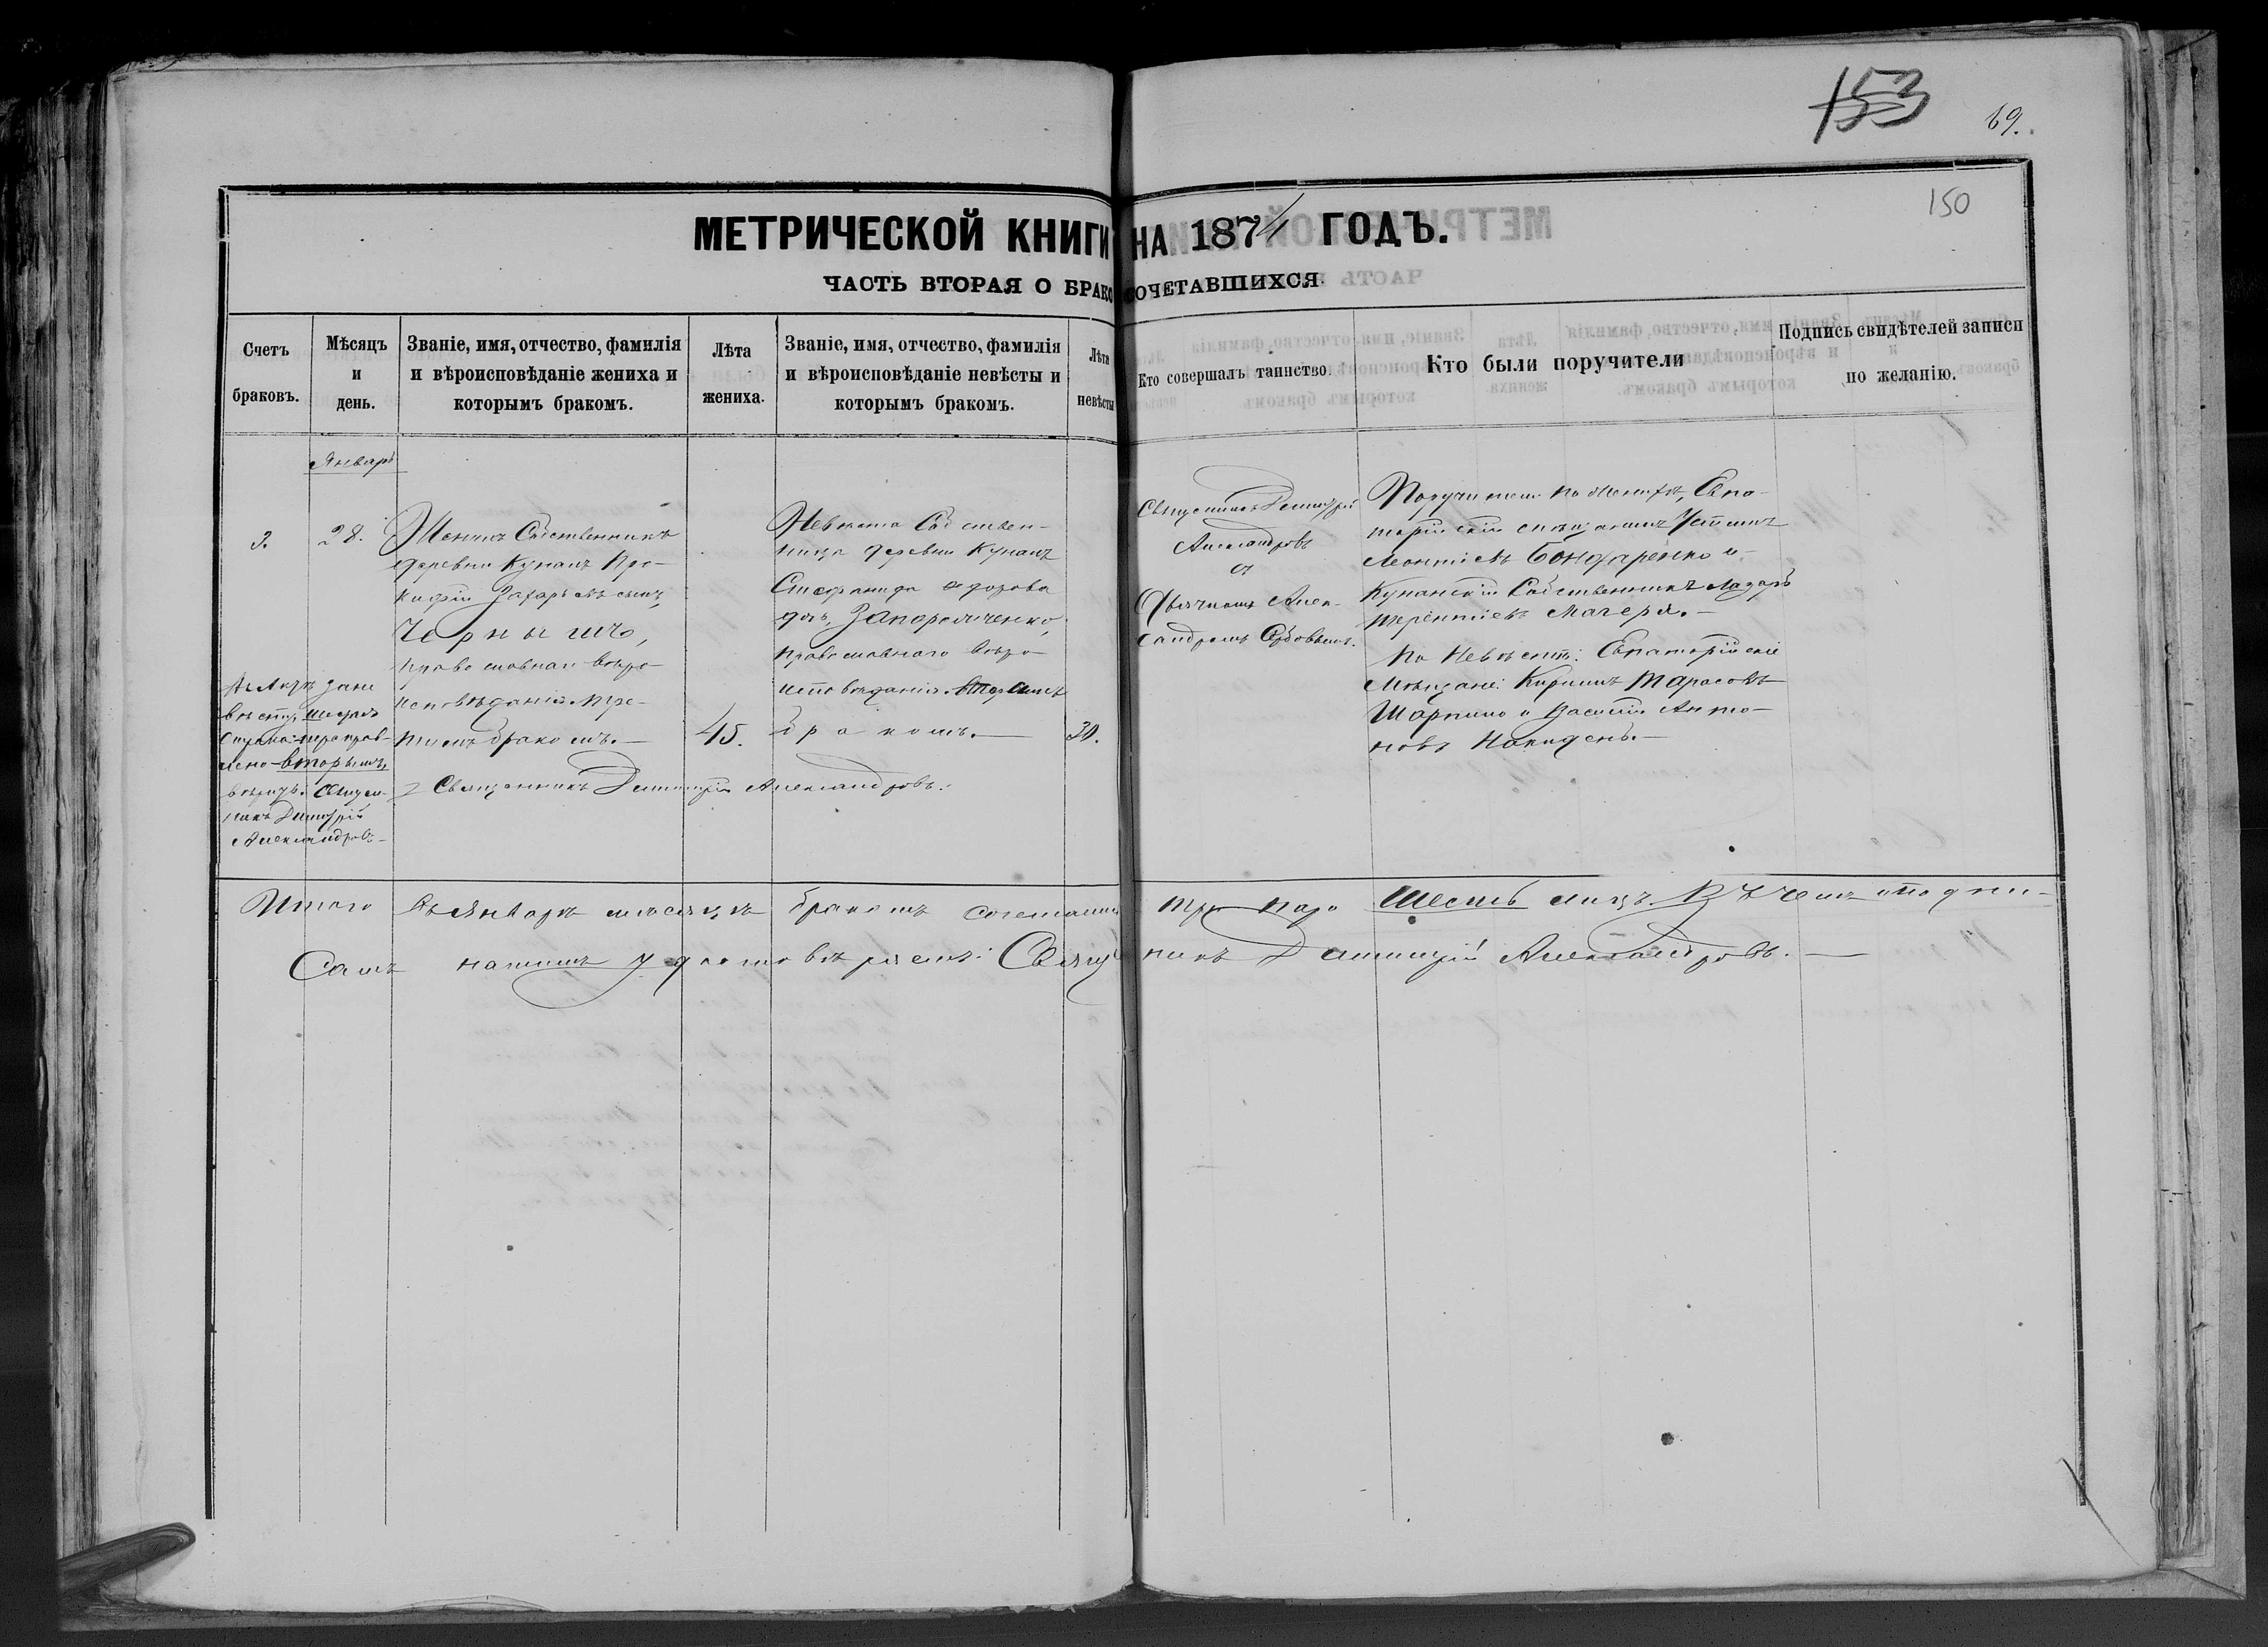 153
69.
150
МЕТРИЧЕСКОЙ КНИГИ НА 1874 ГОДЪ.
ЧАСТЬ ВТОРАЯ О БРАКОСОЧЕТАВШИХСЯ.
Счетъ браковъ.
Мѣсяцъ и день.
Званіе, имя, отчество, фамилія
и вѣроисповѣданіе жениха и
которымъ бракомъ.
Лѣта жениха.
Званіе, имя, отчество, фамилія
и вѣроисповѣданіе невѣсты и
которымъ бракомъ.
Лѣта невѣсты
Кто совершалъ таинство.
Кто были поручители
Подпись свидѣтелей записи
по желанію.
Январь
3.
28.
Женихъ Собственникъ
деревни Кунанъ Про-
кофій Захарьевъ сынъ,
Чернышъ,
православнаго вѣро-
исповѣданія. Тре-
тьимъ бракомъ.—
45.
Невѣста Собствен-
ница деревни Кунанъ
Стефанида Ѳедорова
дочь, Запорожченко,
православнаго вѣро-
исповѣданія. вторымъ
бракомъ.—
30.
невѣсты
вторымъ
Священ-
никъ Димитрій
Александровъ—
Священникъ Димитрій Александровъ.
Священникъ Димитрій
Александровъ
съ
Алек-
сандромъ
Поручители по женихѣ, Евпа-
торійскій мѣщанинъ Устинъ
Леонтіевъ Бондаренко и
Кунанскій Собственникъ Лазарь
Терентіевъ Мачера.—
По Невѣстѣ: Евпаторійскіе
Мѣщане: Кириллъ Тарасовъ
и Василій Анто-
новъ
Итого въ Январѣ мѣсяцѣ бракомъ сочетались три пары Шесть лицъ. Въ чемъ подпи-
Самъ нашимъ удостовѣряемъ: Священникъ Димитрій Александровъ.—